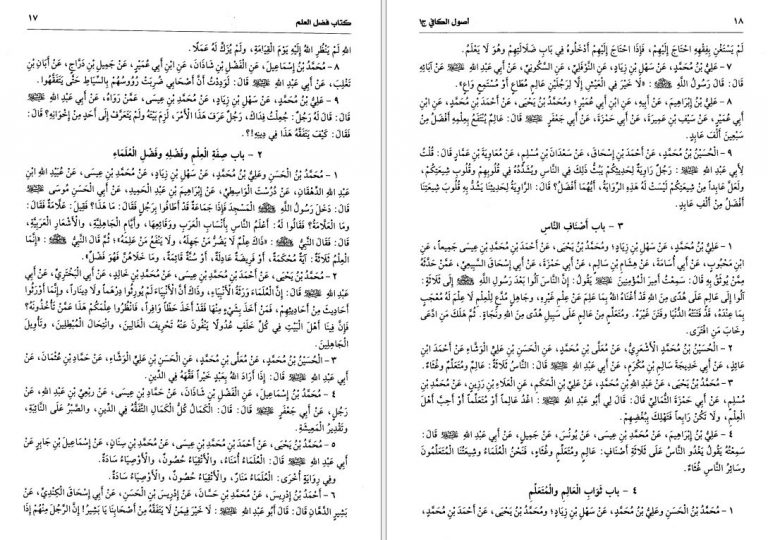 ١٧ كتاب فضل العلم
اللهِ لَمْ يَنْظُرِ اللهُ إِلَيْهِ يَوْمَ الْقِيَامَةِ، وَلَمْ يُزَكِّ لَهُ عَمَلًا.
٨ - مُحَمَّدُ بْنُ إِسْمَاعِيلَ، عَنِ الْفَضْلِ بْنِ شَاذَانَ، عَنِ ابْنِ أَبِي عُمَيْرٍ، عَنْ جَمِيلِ بْنِ دَرَّاجٍ، عَنْ أَبَانِ بْنِ
تَغْلِبَ، عَنْ أَبِي عَبْدِ اللهِ قَالَ: لَوَدِدْتُ أَنَّ أَصْحَابِي ضُرِبَتْ رُؤُوسُهُمْ بِالسِّيَاطِ حَتَّى يَتَفَقَّهُوا.
٩ - عَلِيُّ بْنُ مُحَمَّدٍ، عَنْ سَهْلِ بْنِ زِيَادٍ، عَنْ مُحَمَّدِ بْنِ عِيسَى، عَمَّنْ رَوَاهُ، عَنْ أَبِي عَبْدِ اللهِ
قَالَ: قَالَ لَهُ رَجُلٌ: جُعِلْتُ فِدَاكَ، رَجُلٌ عَرَفَ هَذَا الْأَمْرَ، لَزِمَ بَيْتَهُ وَلَمْ يَتَعَرَّفْ إِلَى أَحَدٍ مِنْ إِخْوَانِهِ؟ قَالَ:
فَقَالَ: كَيْفَ يَتَفَقَّهُ هَذَا فِي دِينِهِ؟!
٢ - باب صِفَةِ الْعِلْمِ وَفَضْلِهِ وَفَضْلِ الْعُلَمَاءِ
١ - مُحَمَّدُ بْنُ الْحَسَنِ وَعَلِيُّ بْنُ مُحَمَّدٍ، عَنْ سَهْلِ بْنِ زِيَادٍ، عَنْ مُحَمَّدِ بْنِ عِيسَى، عَنْ عُبَيْدِ اللهِ ابْنِ
عَبْدِ اللهِ الدِّهْقَانِ، عَنْ دُرُسْتَ الْوَاسِطِيِّ، عَنْ إِبْرَاهِيمَ بْنِ عَبْدِ الْحَمِيدِ، عَنْ أَبِي الْحَسَنِ مُوسَى
قَالَ: دَخَلَ رَسُولُ اللهِ الْمَسْجِدَ فَإِذَا جَمَاعَةٌ قَدْ أَطَافُوا بِرَجُلٍ فَقَالَ: مَا هَذَا؟ فَقِيلَ: عَلَّامَةٌ فَقَالَ:
وَمَا الْعَلَّامَةُ؟ فَقَالُوا لَهُ: أَعْلَمُ النَّاسِ بِأَنْسَابِ الْعَرَبِ وَوَقَائِعِهَا، وَأَيَّامِ الْجَاهِلِيَّةِ، وَالْأَشْعَارِ الْعَرَبِيَّةِ،
قَالَ: فَقَالَ النَّبِيُّ : «ذَاكَ عِلْمٌ لَا يَضُرُّ مَنْ جَهِلَهُ، وَلَا يَنْفَعُ مَنْ عَلِمَهُ» ثُمَّ قَالَ النَّبِيُّ : «إِنَّمَا
الْعِلْمُ ثَلَاثَةٌ: آيَةٌ مُحْكَمَةٌ، أَوْ فَرِيضَةٌ عَادِلَةٌ، أَوْ سُنَّةٌ قَائِمَةٌ، وَمَا خَلَاهُنَّ فَهُوَ فَضْلٌ».
٢ - مُحَمَّدُ بْنُ يَحْيَى، عَنْ أَحْمَدَ بْنِ مُحَمَّدِ بْنِ عِيسَى، عَنْ مُحَمَّدِ بْنِ خَالِدٍ، عَنْ أَبِي الْبَخْتَرِيِّ، عَنْ
أَبِي عَبْدِ اللهِ قَالَ: إِنَّ الْعُلَمَاءَ وَرَثَةُ الْأَنْبِيَاءِ، وَذَاكَ أَنَّ الْأَنْبِيَاءَ لَمْ يُورِثُوا دِرْهَماً وَلَا دِينَاراً، وَإِنَّمَا أَوْرَثُوا
أَحَادِيثَ مِنْ أَحَادِيثِهِمْ، فَمَنْ أَخَذَ بِشَيْءٍ مِنْهَا فَقَدْ أَخَذَ حَظًّا وَافِراً، فَانْظُرُوا عِلْمَكُمْ هَذَا عَمَّنْ تَأْخُذُونَهُ؟
فَإِنَّ فِينَا أَهْلَ الْبَيْتِ فِي كُلِّ خَلَفٍ عُدُولًا يَنْفُونَ عَنْهُ تَحْرِيفَ الْغَالِينَ، وَانْتِحَالَ الْمُبْطِلِينَ، وَتَأْوِيلَ
الْجَاهِلِينَ.
٣ - الْحُسَيْنُ بْنُ مُحَمَّدٍ، عَنْ مُعَلَّى بْنِ مُحَمَّدٍ، عَنِ الْحَسَنِ بْنِ عَلِيٍّ الْوَشَّاءِ، عَنْ حَمَّادِ بْنِ عُثْمَانَ، عَنْ
أَبِي عَبْدِ اللهِ قَالَ: إِذَا أَرَادَ اللهُ بِعَبْدٍ خَيْراً فَقَّهَهُ فِي الدِّينِ.
٤ - مُحَمَّدُ بْنُ إِسْمَاعِيلَ، عَنِ الْفَضْلِ بْنِ شَاذَانَ، عَنْ حَمَّادِ بْنِ عِيسَى، عَنْ رِبْعِيِّ بْنِ عَبْدِ اللهِ، عَنْ
رَجُلٍ، عَنْ أَبِي جَعْفَرٍ قَالَ: قَالَ: الْكَمَالُ كُلُّ الْكَمَالِ التَّفَقُّهُ فِي الدِّينِ، وَالصَّبْرُ عَلَى النَّائِبَةِ،
وَتَقْدِيرُ الْمَعِيشَةِ.
٥ - مُحَمَّدُ بْنُ يَحْيَى، عَنْ أَحْمَدَ بْنِ مُحَمَّدِ بْنِ عِيسَى، عَنْ مُحَمَّدِ بْنِ سِنَانٍ، عَنْ إِسْمَاعِيلَ بْنِ جَابِرٍ عَنْ
أَبِي عَبْدِ اللهِ قَالَ: الْعُلَمَاءُ أُمَنَاءُ، وَالْأَتْقِيَاءُ حُصُونٌ، وَالْأَوْصِيَاءُ سَادَةٌ.
وَفِي رِوَايَةٍ أُخْرَى: الْعُلَمَاءُ مَنَارٌ، وَالْأَتْقِيَاءُ حُصُونٌ، وَالْأَوْصِيَاءُ سَادَةٌ.
٦ - أَحْمَدُ بْنُ إِدْرِيسَ، عَنْ مُحَمَّدِ بْنِ حَسَّانَ، عَنْ إِدْرِيسَ بْنِ الْحَسَنِ، عَنْ أَبِي إِسْحَاقَ الْكِنْدِيِّ، عَنْ
بَشِيرٍ الدَّهَّانِ قَالَ: قَالَ أَبُو عَبْدِ اللهِ : لَا خَيْرَ فِيمَنْ لَا يَتَفَقَّهُ مِنْ أَصْحَابِنَا يَا بَشِيرُ! إِنَّ الرَّجُلَ مِنْهُمْ إِذَا
١٨ أصول الكافي ج١
لَمْ يَسْتَغْنِ بِفِقْهِهِ احْتَاجَ إِلَيْهِمْ، فَإِذَا احْتَاجَ إِلَيْهِمْ أَدْخَلُوهُ فِي بَابِ ضَلَالَتِهِمْ وَهُوَ لَا يَعْلَمُ.
٧ - عَلِيُّ بْنُ مُحَمَّدٍ، عَنْ سَهْلِ بْنِ زِيَادٍ، عَنِ النَّوْفَلِيِّ، عَنِ السَّكُونِيِّ، عَنْ أَبِي عَبْدِ اللهِ عَنْ آبَائِهِ
قَالَ: قَالَ رَسُولُ اللهِ : «لَا خَيْرَ فِي الْعَيْشِ إِلَّا لِرَجُلَيْنِ عَالِمٍ مُطَاعٍ أَوْ مُسْتَمِعٍ وَاعٍ».
٨ - عَلِيُّ بْنُ إِبْرَاهِيمَ، عَنْ أَبِيهِ، عَنِ ابْنِ أَبِي عُمَيْرٍ؛ وَمُحَمَّدُ بْنُ يَحْيَى، عَنْ أَحْمَدَ بْنِ مُحَمَّدٍ، عَنِ ابْنِ
أَبِي عُمَيْرٍ، عَنْ سَيْفِ بْنِ عَمِيرَةَ، عَنْ أَبِي حَمْزَةَ، عَنْ أَبِي جَعْفَرٍ قَالَ: عَالِمٌ يُنْتَفَعُ بِعِلْمِهِ أَفْضَلُ مِنْ
سَبْعِينَ أَلْفَ عَابِدٍ.
٩ - الْحُسَيْنُ بْنُ مُحَمَّدٍ، عَنْ أَحْمَدَ بْنِ إِسْحَاقَ، عَنْ سَعْدَانَ بْنِ مُسْلِمٍ، عَنْ مُعَاوِيَةَ بْنِ عَمَّارٍ قَالَ: قُلْتُ
لِأَبِي عَبْدِ اللهِ : رَجُلٌ رَاوِيَةٌ لِحَدِيثِكُمْ يَبُثُّ ذَلِكَ فِي النَّاسِ وَيُشَدِّدُهُ فِي قُلُوبِهِمْ وَقُلُوبِ شِيعَتِكُمْ
وَلَعَلَّ عَابِداً مِنْ شِيعَتِكُمْ لَيْسَتْ لَهُ هَذِهِ الرِّوَايَةُ، أَيُّهُمَا أَفْضَلُ؟ قَالَ: الرَّاوِيَةُ لِحَدِيثِنَا يَشُدُّ بِهِ قُلُوبَ شِيعَتِنَا
أَفْضَلُ مِنْ أَلْفِ عَابِدٍ.
٣ - باب أَصْنَافِ النَّاسِ
١ - عَلِيُّ بْنُ مُحَمَّدٍ، عَنْ سَهْلِ بْنِ زِيَادٍ؛ وَمُحَمَّدُ بْنُ يَحْيَى، عَنْ أَحْمَدَ بْنِ مُحَمَّدِ بْنِ عِيسَى جَمِيعاً، عَنِ
ابْنِ مَحْبُوبٍ، عَنْ أَبِي أُسَامَةَ، عَنْ هِشَامِ بْنِ سَالِمٍ، عَنْ أَبِي حَمْزَةَ، عَنْ أَبِي إِسْحَاقَ السَّبِيعِيِّ، عَمَّنْ حَدَّثَهُ
مِمَّنْ يُوثَقُ بِهِ قَالَ: سَمِعْتُ أَمِيرَ الْمُؤْمِنِينَ يَقُولُ: إِنَّ النَّاسَ آلُوا بَعْدَ رَسُولِ اللهِ إِلَى ثَلَاثَةٍ:
آلُوا إِلَى عَالِمٍ عَلَى هُدًى مِنَ اللهِ قَدْ أَغْنَاهُ اللهُ بِمَا عَلِمَ عَنْ عِلْمِ غَيْرِهِ، وَجَاهِلٍ مُدَّعٍ لِلْعِلْمِ لَا عِلْمَ لَهُ مُعْجَبٍ
بِمَا عِنْدَهُ، قَدْ فَتَنَتْهُ الدُّنْيَا وَفَتَنَ غَيْرَهُ. وَمُتَعَلِّمٍ مِنْ عَالِمٍ عَلَى سَبِيلِ هُدًى مِنَ اللهِ وَنَجَاةٍ، ثُمَّ هَلَكَ مَنِ ادَّعَى
وَخَابَ مَنِ افْتَرَى.
٢ - الْحُسَيْنُ بْنُ مُحَمَّدٍ الْأَشْعَرِيُّ، عَنْ مُعَلَّى بْنِ مُحَمَّدٍ، عَنِ الْحَسَنِ بْنِ عَلِيٍّ الْوَشَّاءِ عَنْ أَحْمَدَ ابْنِ
عَائِذٍ، عَنْ أَبِي خَدِيجَةَ سَالِمِ بْنِ مُكْرَمٍ، عَنْ أَبِي عَبْدِ اللهِ قَالَ: النَّاسُ ثَلَاثَةٌ: عَالِمٌ وَمُتَعَلِّمٌ وَغُثَاءٌ.
٣ - مُحَمَّدُ بْنُ يَحْيَى، عَنْ عَبْدِ اللهِ بْنِ مُحَمَّدٍ، عَنْ عَلِيِّ بْنِ الْحَكَمِ، عَنِ الْعَلَاءِ بْنِ رَزِينٍ، عَنْ مُحَمَّدِ بْنِ
مُسْلِمٍ، عَنْ أَبِي حَمْزَةَ الثُّمَالِيِّ قَالَ: قَالَ لِي أَبُو عَبْدِ اللهِ : اغْدُ عَالِماً أَوْ مُتَعَلِّماً أَوْ أَحِبَّ أَهْلَ
الْعِلْمِ، وَلَا تَكُنْ رَابِعاً فَتَهْلِكَ بِبُغْضِهِمْ.
٤ - عَلِيُّ بْنُ إِبْرَاهِيمَ، عَنْ مُحَمَّدِ بْنِ عِيسَى، عَنْ يُونُسَ، عَنْ جَمِيلٍ، عَنْ أَبِي عَبْدِ اللهِ قَالَ:
سَمِعْتُهُ يَقُولُ يَغْدُو النَّاسُ عَلَى ثَلَاثَةِ أَصْنَافٍ: عَالِمٍ وَمُتَعَلِّمٍ وَغُثَاءٍ، فَنَحْنُ الْعُلَمَاءُ وَشِيعَتُنَا الْمُتَعَلِّمُونَ
وَسَائِرُ النَّاسِ غُثَاءٌ.
٤ - باب ثَوَابِ الْعَالِمِ وَالْمُتَعَلِّمِ
١ - مُحَمَّدُ بْنُ الْحَسَنِ وَعَلِيُّ بْنُ مُحَمَّدٍ، عَنْ سَهْلِ بْنِ زِيَادٍ؛ وَمُحَمَّدُ بْنُ يَحْيَى، عَنْ أَحْمَدَ بْنِ مُحَمَّدٍ،